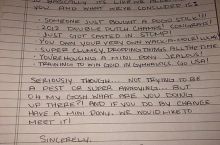 YOU AND WHAT WE'VE CONSIDERED IS:
- SOMEONE JUST BOUGHT A POGO STICK!!!
- 2012 DOUBLE DUTCH CHAMP, CONGRATS!
- JUST GOT CASTED IN STOMP!
- YOU OWN YOUR VERY OWN WHACK-A-MOLE!
- SUPER CLUMSY, DROPPING THINGS ALL THE TIME.
- YOU'RE HOUSING A MINI PONY. JEALOUS!
- TRAINING TO WIN GOLD IN GYMNASTICS. GO USA!
SERIOUSLY THOUGH... NOT TRYING TO BE
A PEST OR SUPER ANNOYING... BUT
OH MY GOSH WHAT ARE YOU DOING
UP THERE?! AND IF YOU DO BY CHANCE
HAVE A MINI PONY, WE WOULD LIKE TO
MEET IT!
SINCERELY,